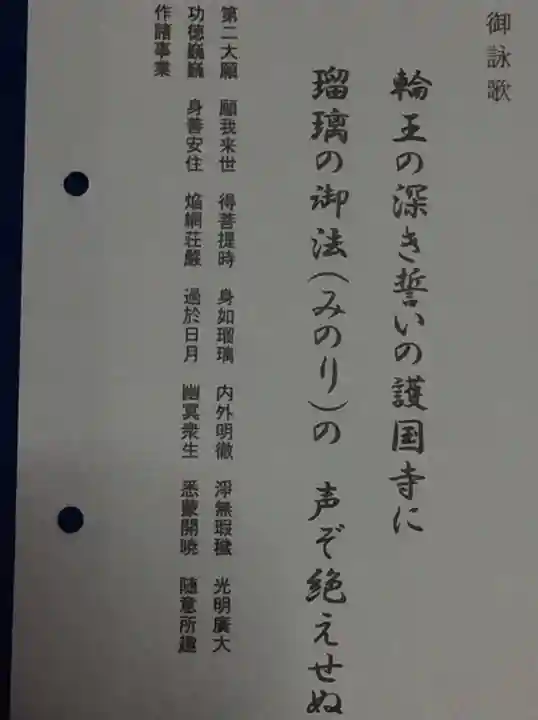 御詠歌
輪王の深き誓いの護国寺に
瑠璃の御法(みのり)の 声ぞ絶えせぬ
第二大願 願我来世 得菩提時 身如瑠璃 内外明徹 淨無瑕穢 光明廣大
功徳巍巍 身善安住 焔網荘嚴 過於日月 幽冥衆生 悉蒙開暁 随意所趣
作諸事業